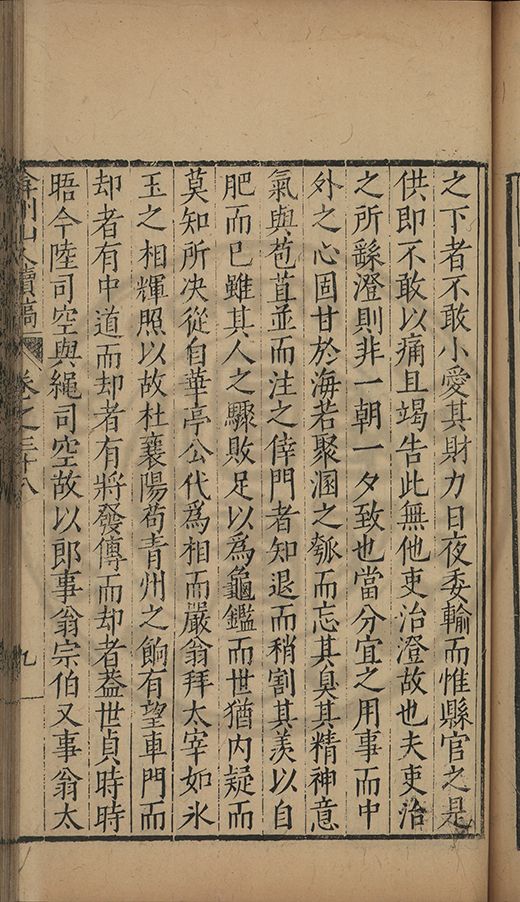 之下者不敢小愛其財力日夜委輸而惟縣官之是
供即不敢以痛且竭告此無他吏治澄故也夫吏治
之所繇澄則非一朝一夕致也當分宜之用事而中
外之心固甘於海若聚溷之瓠而忘其臭其精神意
氣與苞苴並而注之倖門者知退而稍割其羨以自
肥而已雖其人之驟敗足以爲龜鑑而世猶内疑而
莫知所决從自華亭公代爲相而嚴翁拜太宰如氷
玉之相輝照以故杜襄陽荀青州之餉有望車門而
却者有中道而却者有將發傳而却者葢世貞時時
晤今陸司空與繩司空故以郎事翁宗伯又事翁太
弇州山人續稿 卷之三十八 九